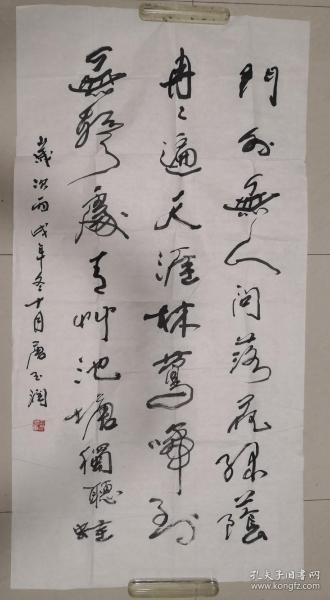 門外無人問落花绿蔭
冉々遍天涯林鶯啼到
無聲處青草池塘獨聽蛙
歲次丙戌年冬十月唐玉潤
孔夫子旧书网